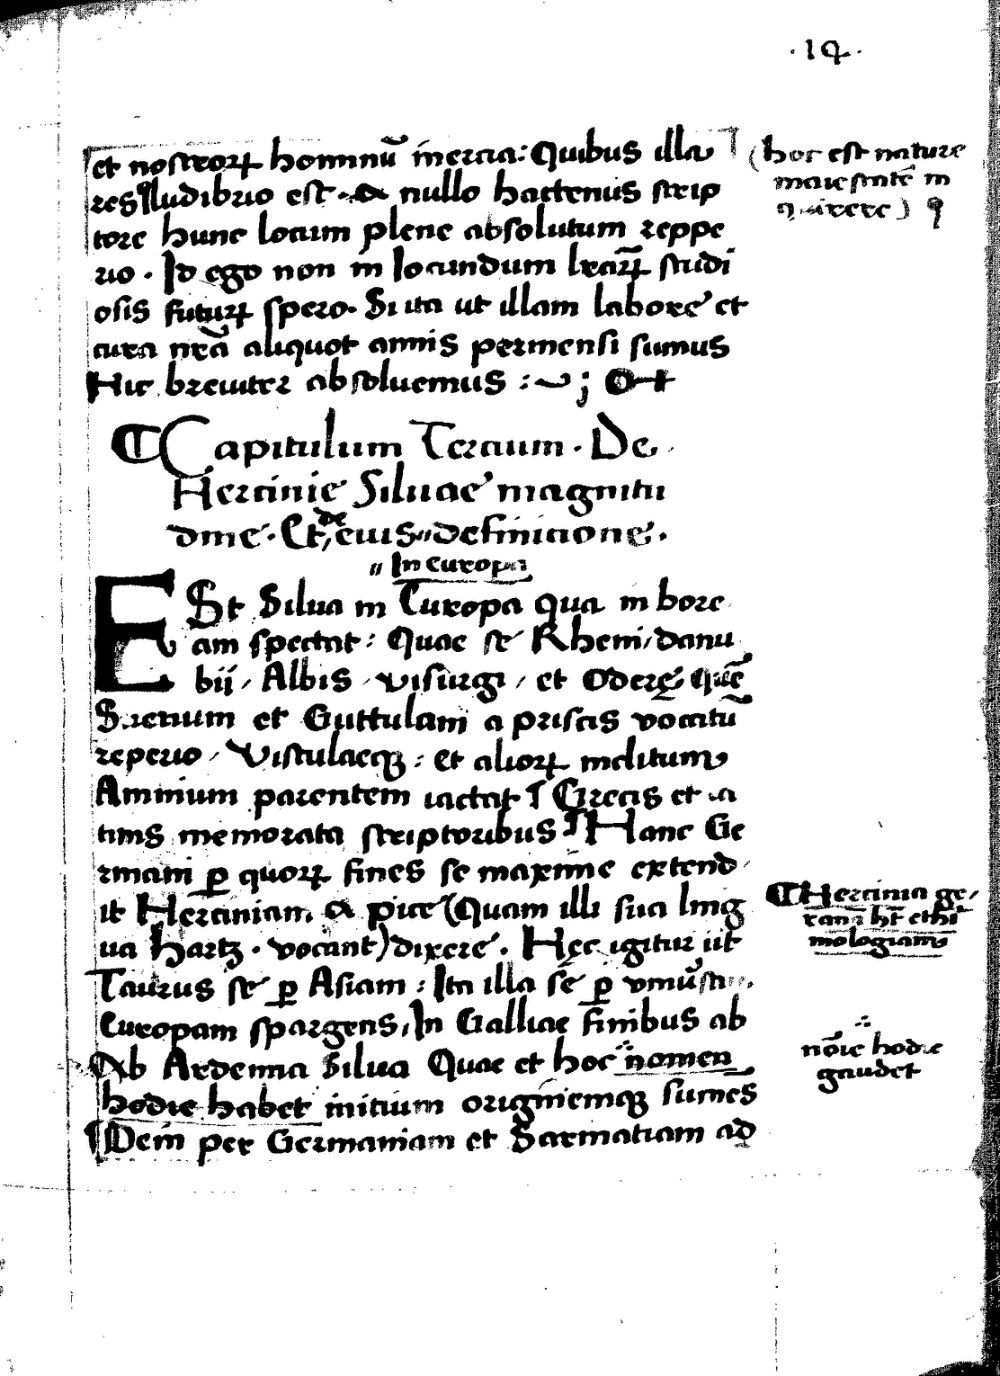 ·14·
et nostrorꝝ hominū inercia: Quibus illa
res ludibrio est · a nullo hactenus scrip
tore hunc locum plene absolutum reppe
rio · Id ego non in Iocundum lrarꝝ studi
osis futurꝝ spero · Si ita ut illam labore et
cura nrā aliquot annis permensi sumus
Hic breuiter absoluemus :~;
(hoc est nature
maiestatē in
Capitulum Tercium · De
Hercinie Siluae magnitu
dine · Et de eius definicione ·
In europa
ESt Silua in Europa qua in bore
am spectat : Quae se Rheni / danu
bii / Albis / visurgi / et Oderę quē
Sueuum et Guttulam a priscis vocatū
reperio / Vistulaeqꝫ : et aliorꝝ inclitum
Amnium parentem iactat Grecis et la
tinis memorata scriptoribus Hanc Ge
rmani ꝑ quorꝝ fines se maxime extend
it Herciniam a pice (Quam illi sua ling
ua hartz · vocant) dixere · Hęc igitur ut
Taurus se ꝑ Asiam : Ita illa sé ꝑ vniūsā
Europam spargens / In Galliae finibus ab
Ab Ardenna Silua Quae et hoc nomen
hodie habet initium originemqꝫ sumēs
Dein per Germaniam et Sarmatiam ad
Hercinia ge/
ranā ht ethi
mologiam
noīe hodie
gaudet